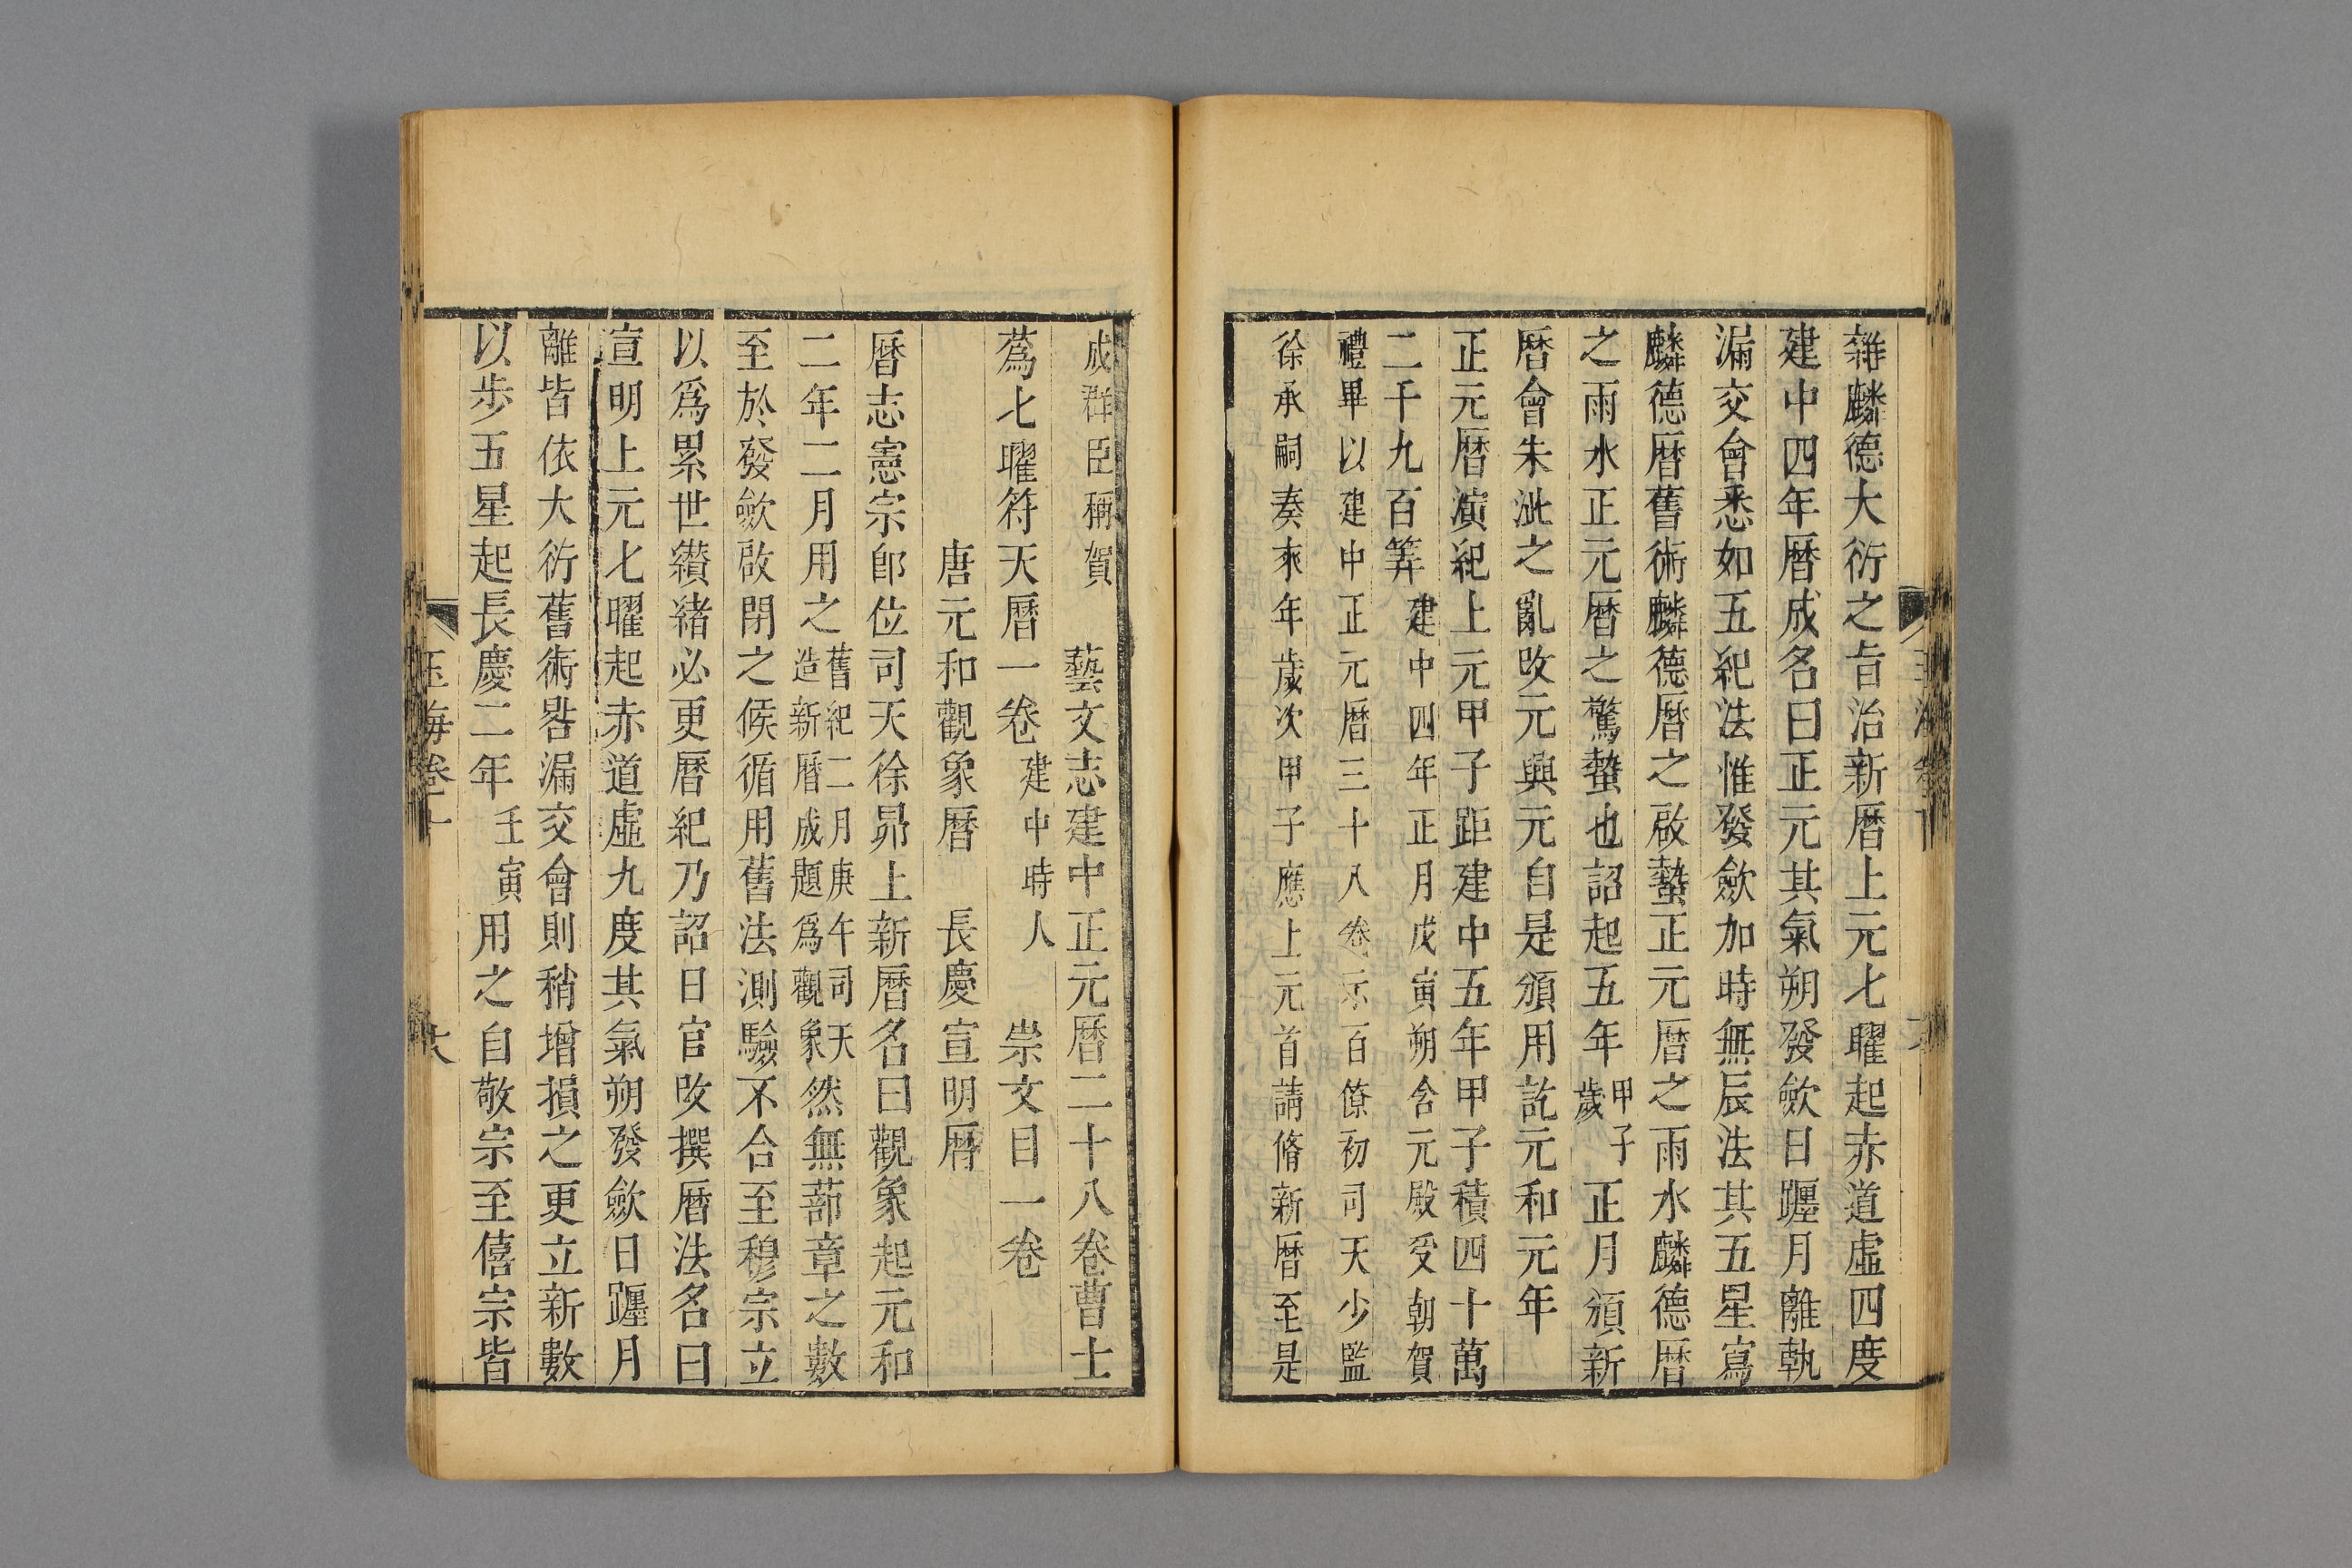 雜麟德大衍之旨治新曆上元七曜起赤道虛四度
建中四年曆成名曰正元其氣朔發斂日躔月離軌
漏交會悉如五紀法惟發斂加時無辰法其五星寫
麟德曆舊術麟德曆之啟蟄正元曆之雨水麟德曆
之雨水正元曆之驚蟄也詔起五年甲子歲正月頒新
曆會朱泚之亂改元興元自是頒用訖元和元年
正元曆演紀上元甲子距建中五年甲子積四十萬
二千九百筭建中四年正月戊寅朔含元殿受朝賀
禮畢以建中正元曆三十八卷示百僚初司天少監
徐承嗣奏來年歲次甲子應上元首請脩新曆至是
成群臣稱賀 藝文志建中正元曆二十八卷曹士
蔿七曜符天曆一卷建中時人 崇文目一卷
唐元和觀象曆 長慶宣明曆
曆志憲宗卽位司天徐昂上新曆名曰觀象起元和
二年二月用之舊紀二月庚午司天造新曆成題爲觀象然無蔀章之數
至於發斂啟閉之候循用舊法測驗不合至穆宗立
以爲累世纘緒必更曆紀乃詔日官改撰曆法名曰
宣明上元七曜起赤道虛九度其氣朔發斂日躔月
離皆依大衍舊術晷漏交會則稍增損之更立新數
以步五星起長慶二年壬寅用之自敬宗至僖宗皆
玉海卷十